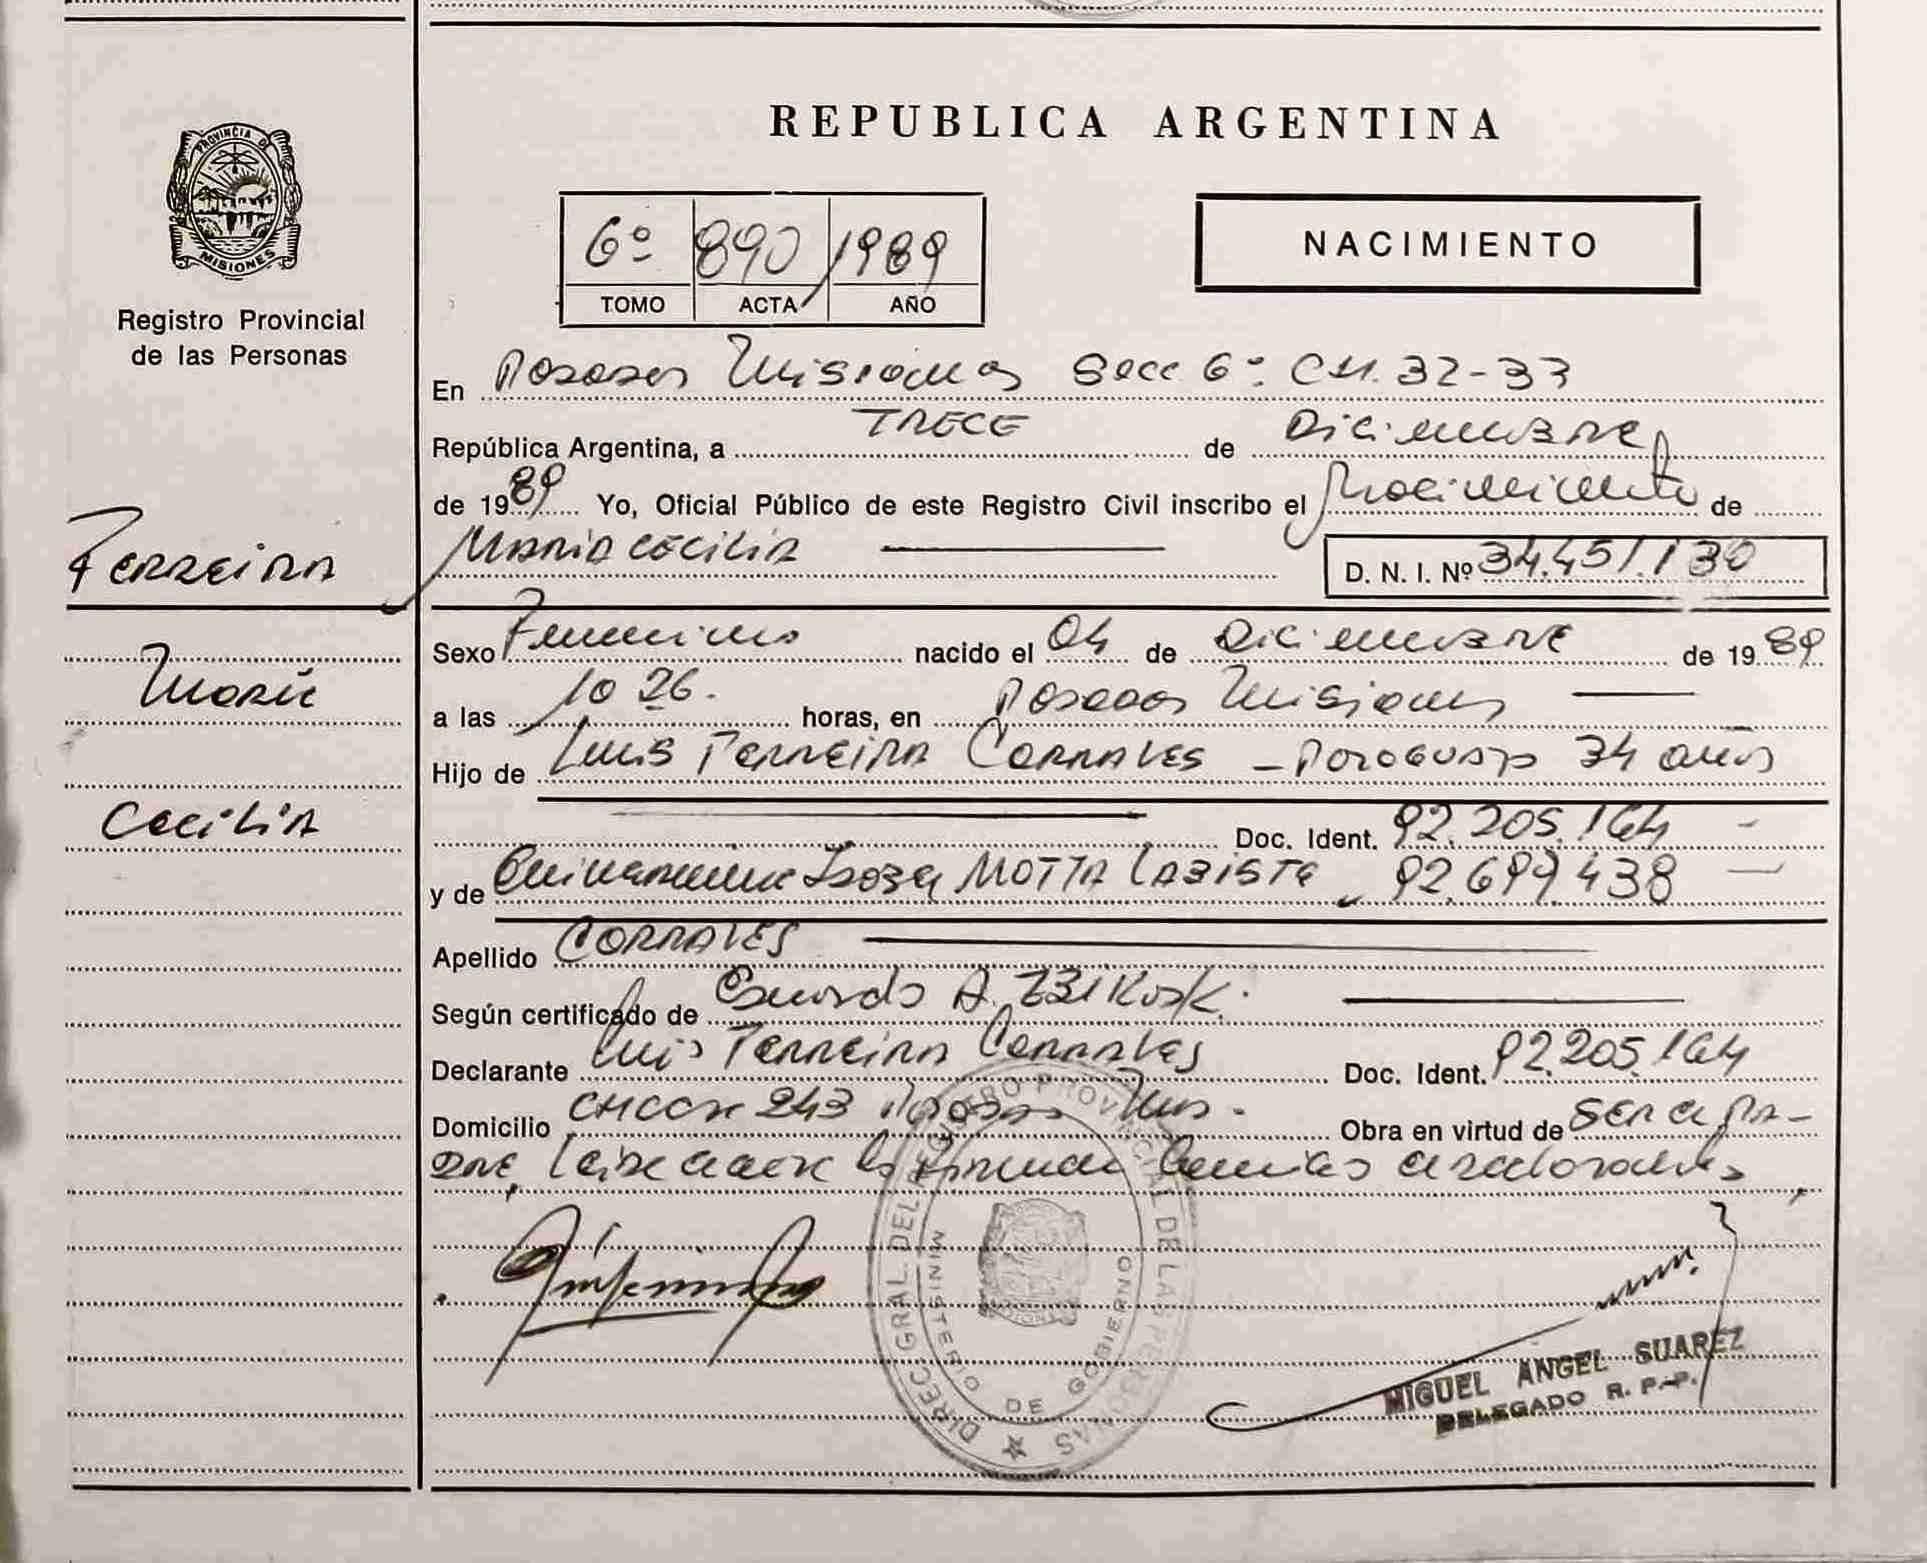 PROVINCIA D
MISIONES
Registro Provincial
de las Personas
Ferreira
María
Cecilia
REPUBLICA ARGENTINA
6º 890 1989
TOMO ACTA AÑO
NACIMIENTO
En Posadas Misiones Secc 6º CH. 32-33
República Argentina, a TRECE de Diciembre
de 1989 Yo, Oficial Público de este Registro Civil inscribo el Nacimiento de
María Cecilia D. N. I. Nº 34.451.130
Sexo Femenino nacido el 04 de Diciembre de 1989
a las 10 26. horas, en Posadas Misiones
Hijo de Luis Ferreira Corrales - Paraguayo 34 años
Doc. Ident. 92.205.164 -
y de MOTTA 92.699.438 -
Apellido CORRALES
Según certificado de A.
Declarante Luis Ferreira Corrales Doc. Ident. 92.205.164
Domicilio 243 Posadas Mns. Obra en virtud de Ser el Pa-
dre,
DIREC. GRAL. DEL REGISTRO PROVINCIAL DE LAS PERSONAS
MINISTERIO DE GOBIERNO
MIGUEL ANGEL SUAREZ
DELEGADO R. P. P.